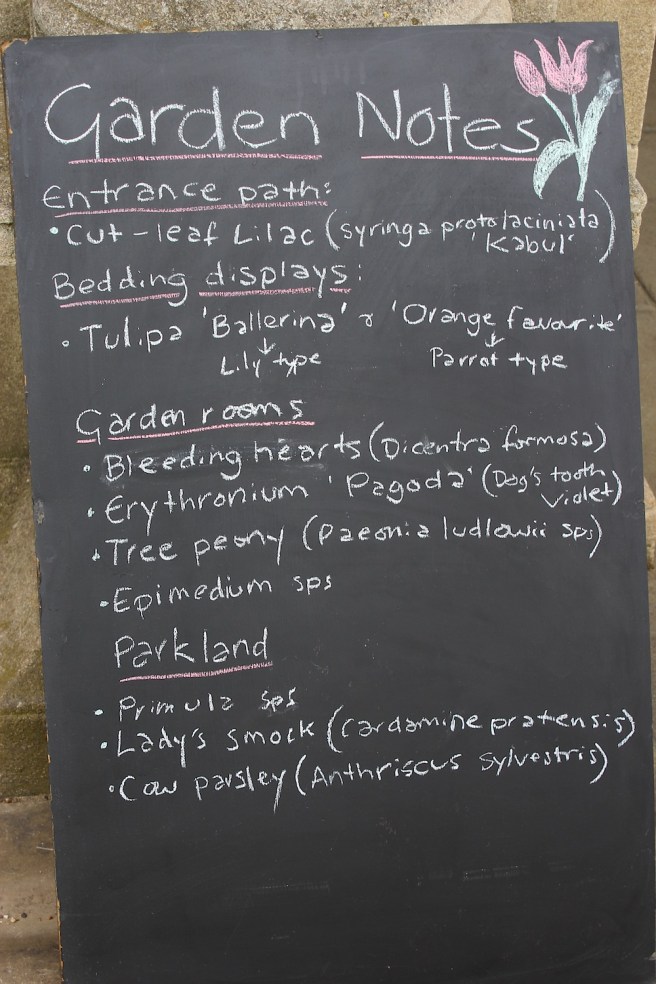 Garden Notes
Entrance path:
• Cut-leaf Lilac (syringa protolaciniata
'Kabul')
Bedding displays:
• Tulipa 'Ballerina' & 'Orange favourite'
Lily type Parrot type
Garden rooms
• Bleeding hearts (Dicentra formosa)
• Erythronium 'Pagoda' (Dog's tooth
violet)
• Tree peony (Paeonia ludlowii sps)
• Epimedium sps
Parkland
• Primula sps
• Lady's smock (Cardamine pratensis)
• Cow parsley (Anthriscus sylvestris)